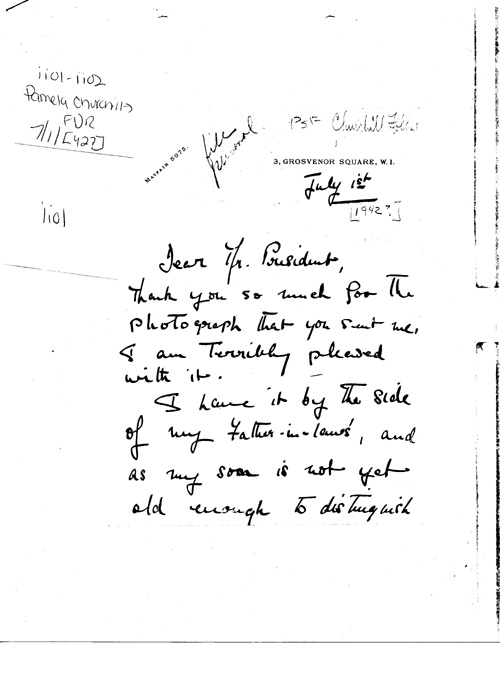 1101-1102
Pamela Churchill
FDR
7/1/[42?]
1101
file
personal
PSF Churchill Folder
MAYFAIR 5075.
3, GROSVENOR SQUARE, W.1.
July 1st
[1942?]
Dear Mr. President,
Thank you so much for the
photograph that you sent me,
I am Terribly pleased
with it.
I have it by the side
of my Father-in-laws', and
as my son is not yet
old enough to distinguish